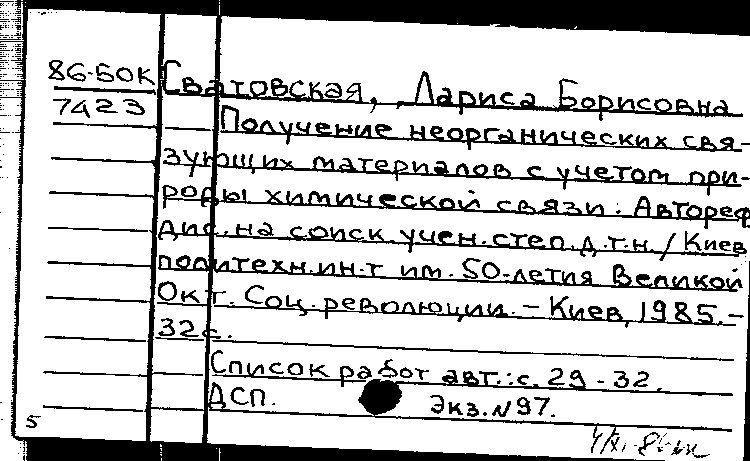 86-БОК Сватовская, Лариса Борисовна
7423
Получение неорганических свя-
зующих материалов с учетом при-
роды химической связи: Автореф
дис. на соиск. учен. степ. д.т.н. / Киев
политехн. ин-т им. 50-летия Великой
Окт. Соц. революции. – Киев, 1985. –
32 с.
Список работ авт.: с. 29-32.
ДСП. Экз. № 97.
5